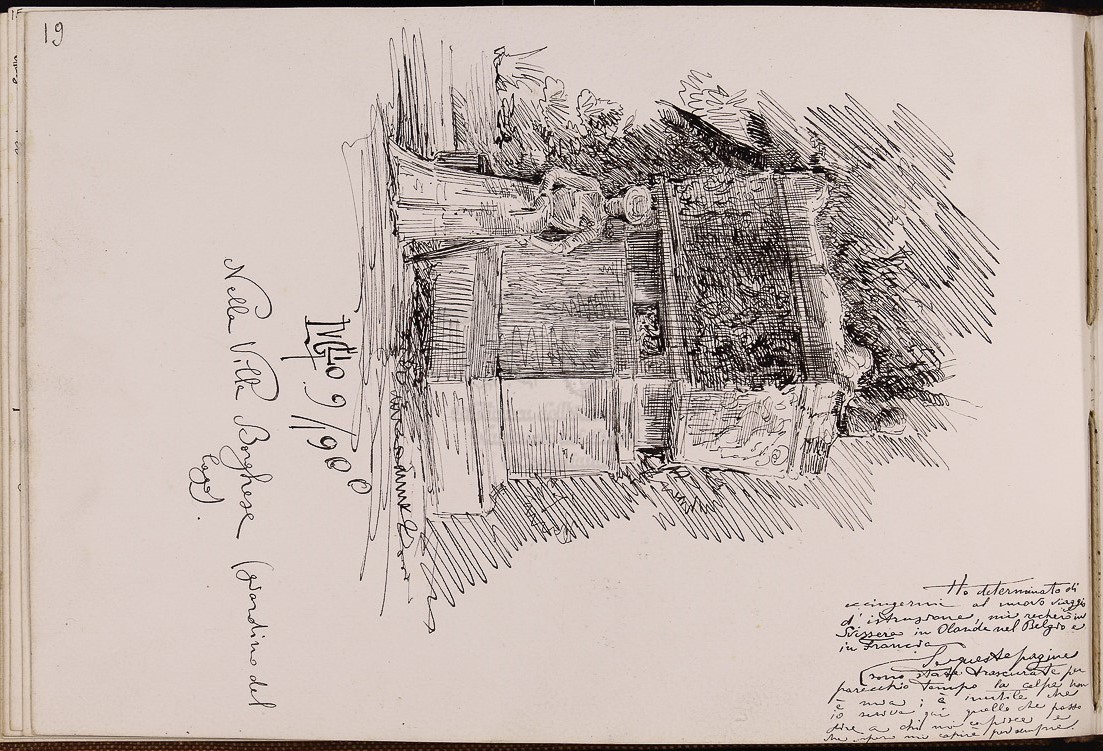 19
Ho determinato di
accingermi al nuovo viaggio
d'istruzione, mi recherò in
Svizzera in Olanda nel Belgio e
in Francia
Se queste pagine
sono state trascurate per
parecchio tempo la colpa non
è mia; è inutile che
io scriva qui quello che posso
dire a chi mi capisce e
mi capire per sempre.
9/900
Nella Villa Borghese (giardino del
lago).